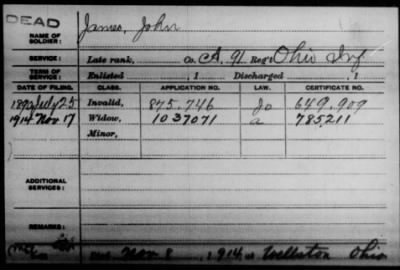 DEAD
NAME OF SOLDIER: James, John
SERVICE: Late rank, Co. A, 91 Reg't Ohio Inf
TERM OF SERVICE: Enlisted , 1 Discharged , 1
DATE OF FILING. CLASS. APPLICATION NO. LAW. CERTIFICATE NO.
1892 July 25 Invalid, 875.746 Jo 649.909
1914 Nov. 17 Widow, 1037071 a 785211
Minor,
ADDITIONAL SERVICES:
REMARKS:
Nov. 8, 1914 at Wellston Ohio